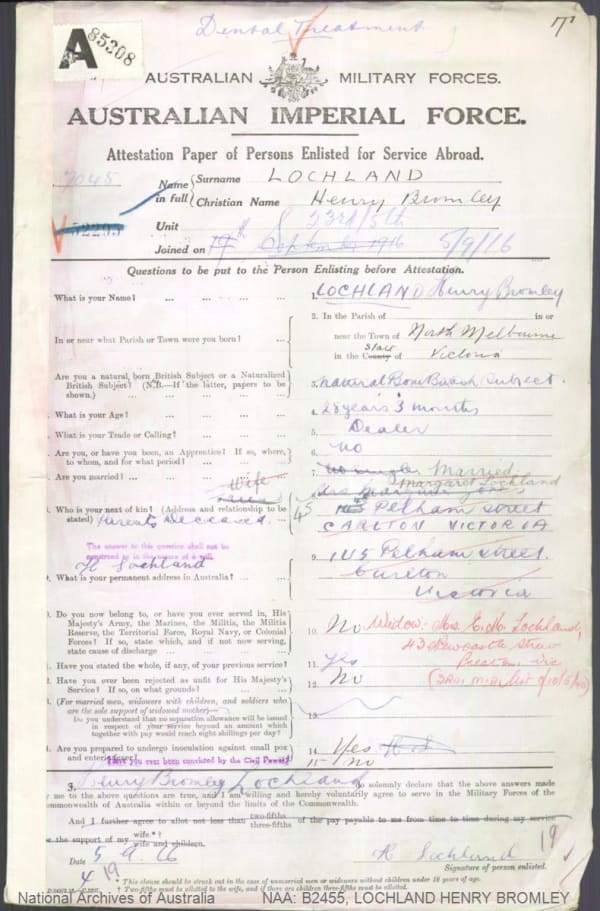 Dental Treatment
A 85208
AUSTRALIAN MILITARY FORCES.
AUSTRALIAN IMPERIAL FORCE.
Attestation Paper of Persons Enlisted for Service Abroad.
7045
Name in full
Surname LOCHLAND
Christian Name Henry Bromley
Unit 23rd/5th
Joined on 19th September 1916 5/9/16
Questions to be put to the Person Enlisting before Attestation.
What is your Name? ... ... ... 1. LOCHLAND Henry Bromley
2. In the Parish of in or
In or near what Parish or Town were you born? ... near the Town of North Melbourne
in the County of State Victoria
Are you a natural born British Subject or a Naturalized
British Subject? (N.B.—If the latter, papers to be
shown.) ... 3. Natural Born British Subject.
What is your Age? ... 4. 28 years 3 months
What is your Trade or Calling? ... 5. Dealer
Are you, or have you been, an Apprentice? If so, where,
to whom, and for what period? ... 6. No
Are you married? ... 7. Married
Wife Margaret Lochland
Who is your next of kin? (Address and relationship to be
stated) Parents Deceased. 145 Pelham Street
CARLTON VICTORIA
The answer to this question shall not be
construed as in the nature of a will.
H Lochland
9. 145 Pelham Street.
What is your permanent address in Australia? ... Carlton
Victoria
Do you now belong to, or have you ever served in, His
Majesty's Army, the Marines, the Militia, the Militia
Reserve, the Territorial Force, Royal Navy, or Colonial
Forces? If so, state which, and if not now serving,
state cause of discharge ... 10. No
Widow: Mrs E. M. Lochland,
43 Newcastle Street
Preston Vic
Have you stated the whole, if any, of your previous service? 11. Yes
Have you ever been rejected as unfit for His Majesty's
Service? If so, on what grounds? ... 12. No
(For married men, widowers with children, and soldiers who
are the sole support of widowed mother)—
Do you understand that no separation allowance will be issued
in respect of your service beyond an amount which
together with pay would reach eight shillings per day? 13.
Are you prepared to undergo inoculation against small pox
and enteric fever? 14. Yes
Have you ever been convicted by the Civil Power? 15 No
I, Henry Bromley Lochland do solemnly declare that the above answers made
by me to the above questions are true, and I am willing and hereby voluntarily agree to serve in the Military Forces of the
Commonwealth of Australia within or beyond the limits of the Commonwealth.
And I further agree to allot not less than two-fifths three-fifths of the pay payable to me from time to time during my service
for the support of my wife.*†
wife and children.
Date 5.9.16
H Lochland
Signature of person enlisted.
19
4 19
* This clause should be struck out in the case of unmarried men or widowers without children under 18 years of age.
† Two-fifths must be allotted to the wife, and if there are children three-fifths must be allotted.
National Archives of Australia
NAA: B2455, LOCHLAND HENRY BROMLEY